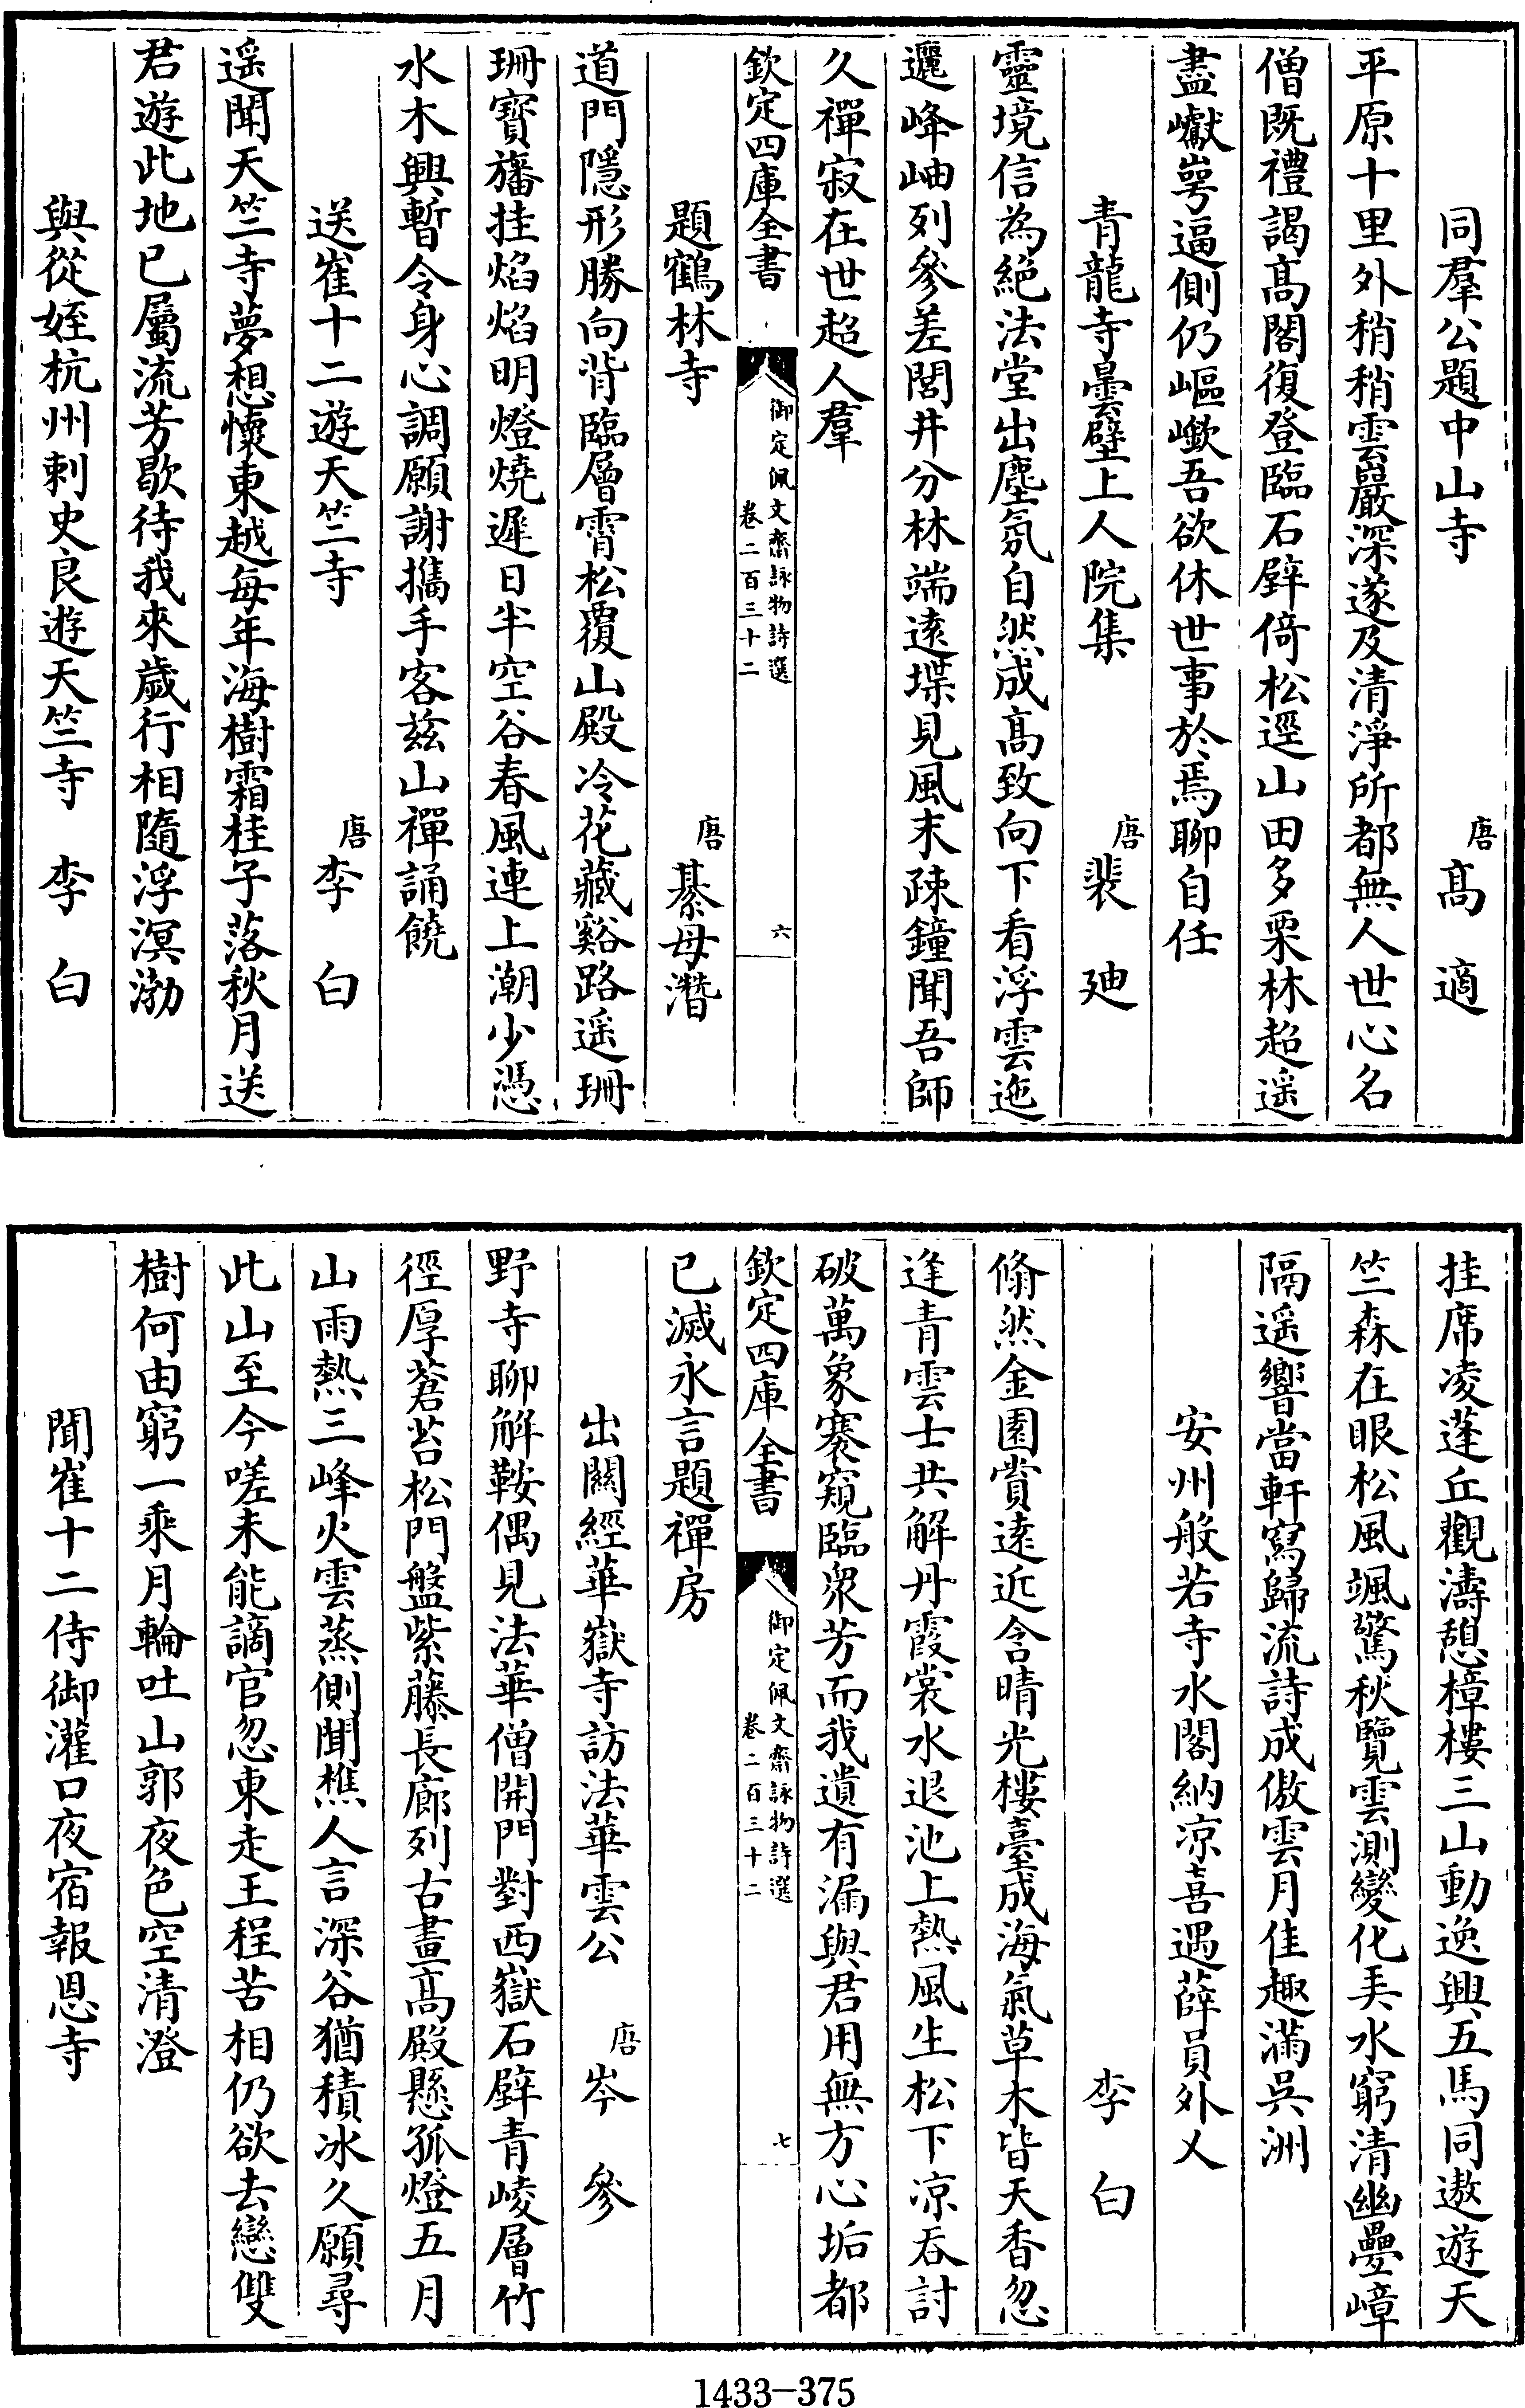 同羣公題中山寺 唐 高適
平原十里外稍稍雲巖深遂及清淨所都無人世心名
僧既禮謁高閣復登臨石壁倚松逕山田多栗林超遥
盡巘崿逼側仍嶇嶔吾欲休世事於焉聊自任
青龍寺曇壁上人院集 唐 裴廸
靈境信為絶法堂出塵氛自然成高致向下看浮雲迤
邐峰岫列參差閭井分林端遠堞見風末疎鐘聞吾師
久禪寂在世超人羣
欽定四庫全書 御定佩文齋詠物詩選 卷二百三十二 六
題鶴林寺 唐 綦母潛
道門隱形勝向背臨層霄松覆山殿冷花藏谿路遥珊
珊寶旛挂焰焰明燈燒遲日半空谷春風連上潮少憑
水木興暫令身心調願謝攜手客兹山禪誦饒
送崔十二遊天竺寺 唐 李白
遥聞天竺寺夢想懷東越每年海樹霜桂子落秋月送
君遊此地已屬流芳歇待我來歲行相隨浮溟渤
與從姪杭州刺史良遊天竺寺 李白
挂席凌蓬丘觀濤憩樟樓三山動逸興五馬同遨遊天
竺森在眼松風颯驚秋覽雲測變化弄水窮清幽疊嶂
隔遥響當軒寫歸流詩成傲雲月佳趣滿吳洲
安州般若寺水閣納凉喜遇薛員外乂
李白
翛然金園賞遠近含晴光樓臺成海氣草木皆天香忽
逢青雲士共解丹霞裳水退池上熱風生松下凉吞討
破萬象褰窺臨衆芳而我遺有漏與君用無方心垢都
欽定四庫全書 御定佩文齋詠物詩選 卷二百三十二 七
已滅永言題禪房
出關經華嶽寺訪法華雲公 唐 岑參
野寺聊解鞍偶見法華僧開門對西嶽石壁青崚層竹
徑厚蒼苔松門盤紫藤長廊列古畫高殿懸孤燈五月
山雨熱三峰火雲蒸側聞樵人言深谷猶積冰久願尋
此山至今嗟未能謫官忽東走王程苦相仍欲去戀雙
樹何由窮一乘月輪吐山郭夜色空清澄
聞崔十二侍御灌口夜宿報恩寺
1433-375